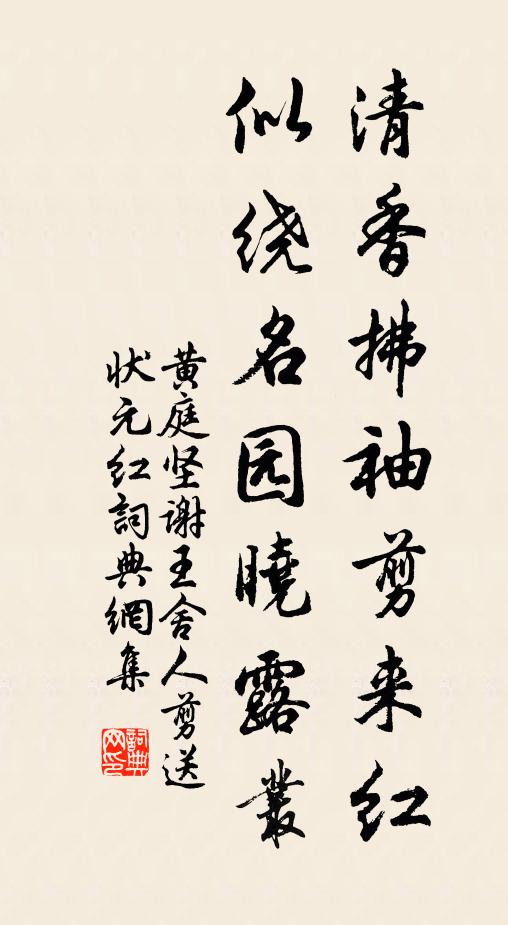 清香拂袖剪来红
似绕名园曉露叢
黄庭坚谢王舍人剪送
状元红詞典網集
詞典网印